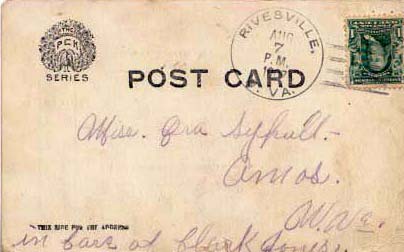 THE
PCK
SERIES
POST CARD
RIVESVILLE,
AUG
7
P.M.
VA.
1
Miss. Ora
Amos.
W.Va.
THIS SIDE FOR THE ADDRESS
in care of Clark Jones.